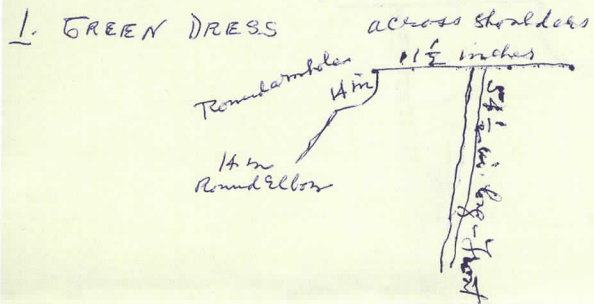 1. GREEN DRESS
across shoulders
11 1/2 inches
Round armholes
14 in
14 in
Round Elbow
54 1/2 in. long - Front